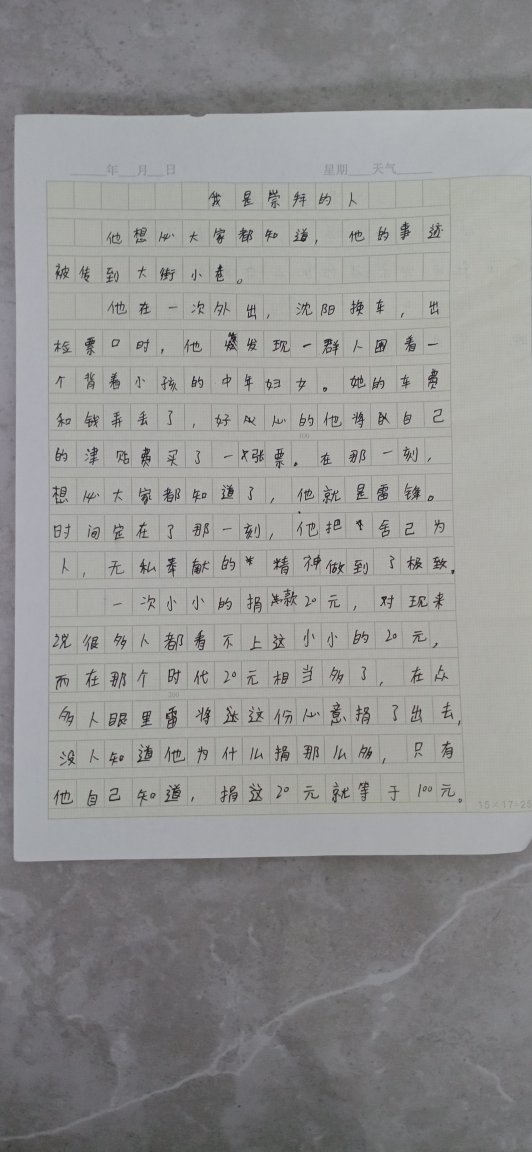 年 月 日 星期 天气
我是崇拜的人
他想必大家都知道，他的事迹
被传到大街小巷。
他在一次外出，沈阳换车，出
检票口时，他发现一群人围看一
个背着小孩的中年妇女。她的车费
和钱弄丢了，好心的他将自己
的津贴费买了一张票。在那一刻，
想必大家都知道了，他就是雷锋。
时间定在了那一刻，他把舍己为
人，无私奉献的精神做到了极致。
一次小小的捐款20元，对现来
说很多人都看不上这小小的20元，
而在那个时代20元相当多了，在众
多人眼里雷将这份心意捐了出去，
没人知道他为什么捐那么多，只有
他自己知道，捐这20元就等于100元。
15×17=25